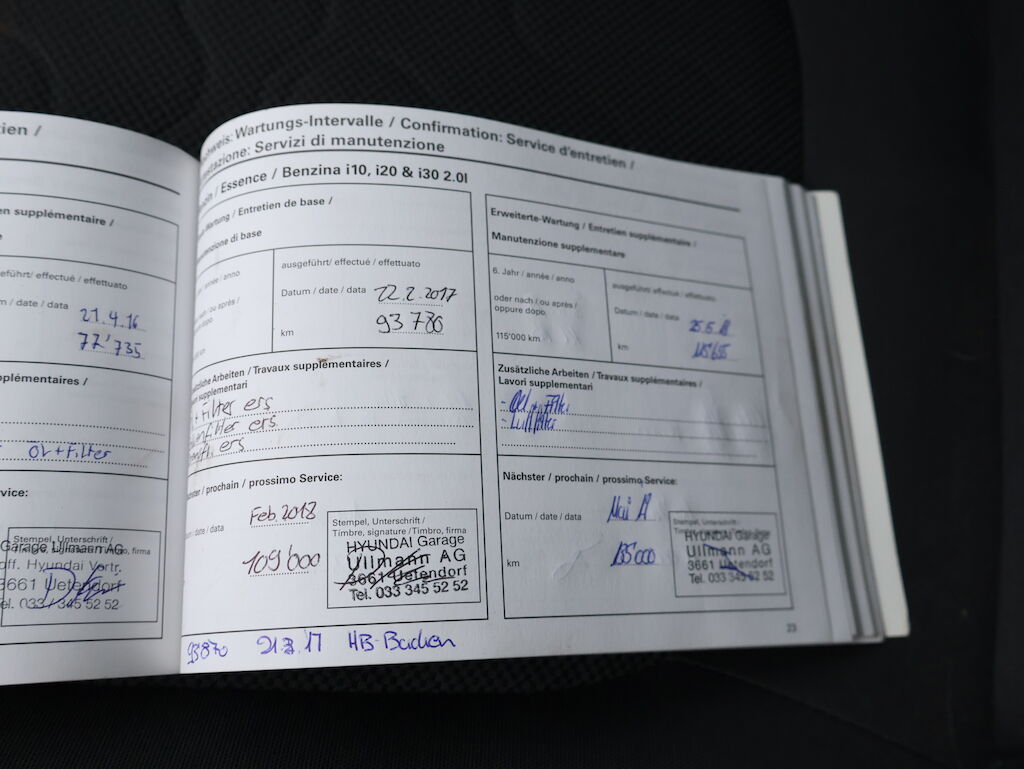 tien /
en supplémentaire /
eführt/ effectué / effettuato
m / date / data 21.4.16
77'735
pplémentaires /
Öl + Filter
vice:
Garage Ullmann AG
off. Hyundai Vertr.
3661 Uetendorf
Tel. 033 / 345 52 52
hweis: Wartungs-Intervalle / Confirmation: Service d'entretien /
Servizi di manutenzione
/ Essence / Benzina i10, i20 & i30 2.0l
Wartung / Entretien de base /
di base
/ année / anno
ausgeführt/ effectué / effettuato
Datum / date / data 22.2.2017
km 93 786
Arbeiten / Travaux supplémentaires /
supplementari
+ Filter ers.
filter ers.
ers
/ prochain / prossimo Service:
/ date / data Feb. 2018
109'000
Stempel, Unterschrift /
Timbre, signature / Timbro, firma
HYUNDAI Garage
Ullmann AG
3661 Uetendorf
Tel. 033 345 52 52
93870 21.3.17
Erweiterte-Wartung / Entretien supplémentaire /
Manutenzione supplementare
6. Jahr / année / anno
oder nach / ou après /
oppure dopo
115'000 km
ausgeführt/ effectué / effettuato
Datum / date / data
km
Zusätzliche Arbeiten / Travaux supplémentaires /
Lavori supplementari
- Luftfilter
Nächster / prochain / prossimo Service:
Datum / date / data Mai
km 135000
Stempel, Unterschrift /
Timbre, signature / Timbro, firma
HYUNDAI Garage
Ullmann AG
3661 Uetendorf
Tel. 033 345 52 52
23